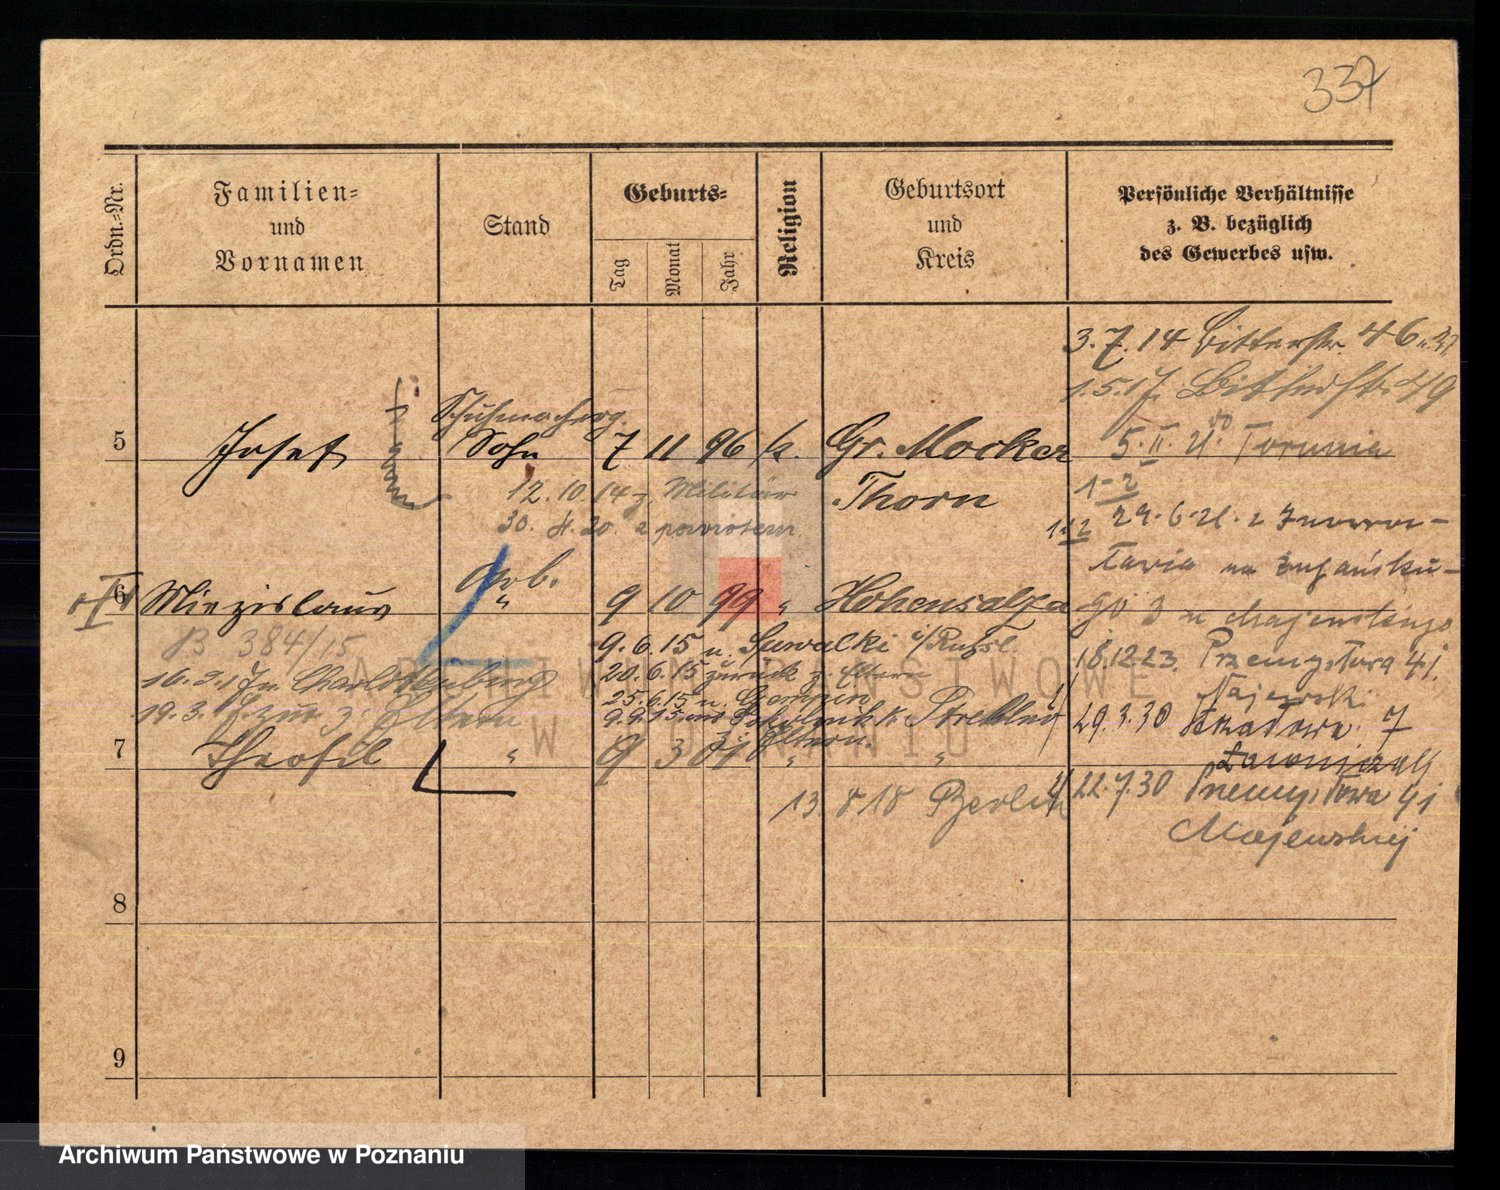 337
Ordn.=Nr.
Familien=
und
Vornamen
Stand
Geburts=
Tag
Monat
Jahr
Religion
Geburtsort
und
Kreis
Persönliche Verhältnisse
z. B. bezüglich
des Gewerbes usw.
3. 7. 14 Bitterstr. 46
1. 5. 17. Bitterstr. 49
5. II. 21. Torunia
5 Josef Schuhmacherg. Sohn 7 11 96 k. Gr. Mocker
Thorn
12. 10. 14 z. Militär
30. 4. 20 z powrotem
1-2
29. 6. 21. z Inowroc-
ławia na
6 Miezislaus Arb. " 9 10 99 " Hohensalza
B 384/15
9. 6. 15 n. Suwalki i/Russl.
20. 6. 15 zurück z. Eltern
25. 6. 15 n.
16. 2. 17 n. Charlottenburg
19. 3. 17 zur. z. Eltern
9. 9. 15 Strelno
z. Eltern.
18. 12. 23. Przemysłowa 41.
Majewski
29. 3. 30 7
7 Theofil " 9 3 01 " "
13. 8 18 Berlin
22. 7. 30 Przemysłowa 41
Majewskiej
8
9
ARCHIWUM PAŃSTWOWE
W POZNANIU
Archiwum Państwowe w Poznaniu